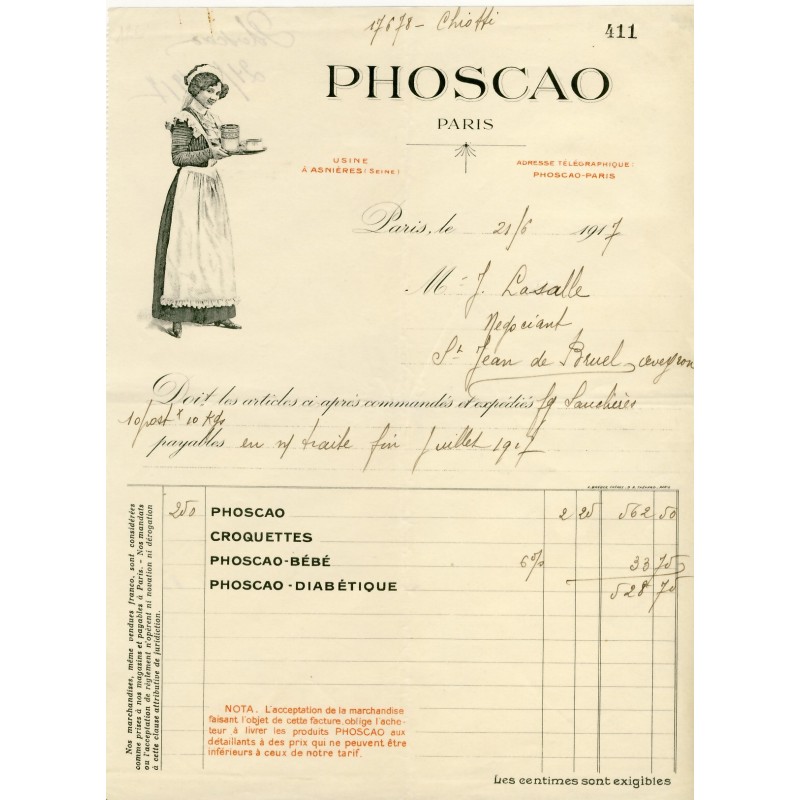 17678 - Chiotti
411
PHOSCAO
PARIS
USINE
À ASNIÈRES (SEINE)
ADRESSE TÉLÉGRAPHIQUE:
PHOSCAO-PARIS
Paris, le 21/6 1917
Mr J. Lasalle
Negociant
St Jean de Bruel, aveyron
Doit les articles ci après commandés et expédiés fg Sauclières
10 post x 10 Kgs
payables en n/ traite fin Juillet 1917
250 PHOSCAO 2 25 562 50
CROQUETTES
PHOSCAO-BÉBÉ 6% 33 75
PHOSCAO-DIABÉTIQUE 528 70
Nos marchandises, même vendues franco, sont considérées
comme prises à nos magasins et payables à Paris. - Nos mandats
ou l'acceptation de règlement n'opèrent ni novation ni dérogation
à cette clause attributive de juridiction.
NOTA. L'acceptation de la marchandise
faisant l'objet de cette facture, oblige l'ache-
teur à livrer les produits PHOSCAO aux
détaillants à des prix qui ne peuvent être
inférieurs à ceux de notre tarif.
Les centimes sont exigibles